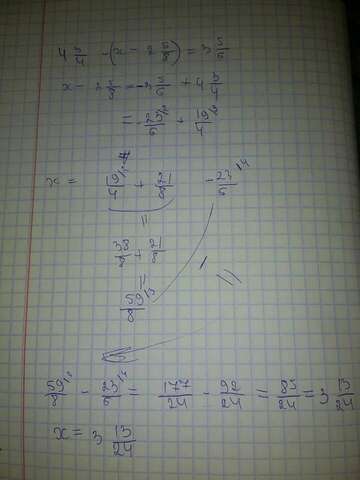 4 3/4 - (x - 2 5/8) = 3 5/6
x - 2 5/8 = -3 5/6 + 4 3/4
= -23/6 + 19/4
x = 19/4 + 21/8 - 23/6
38/8 + 21/8
59/8
59/8 - 23/6 = 177/24 - 92/24 = 85/24 = 3 13/24
x = 3 13/24